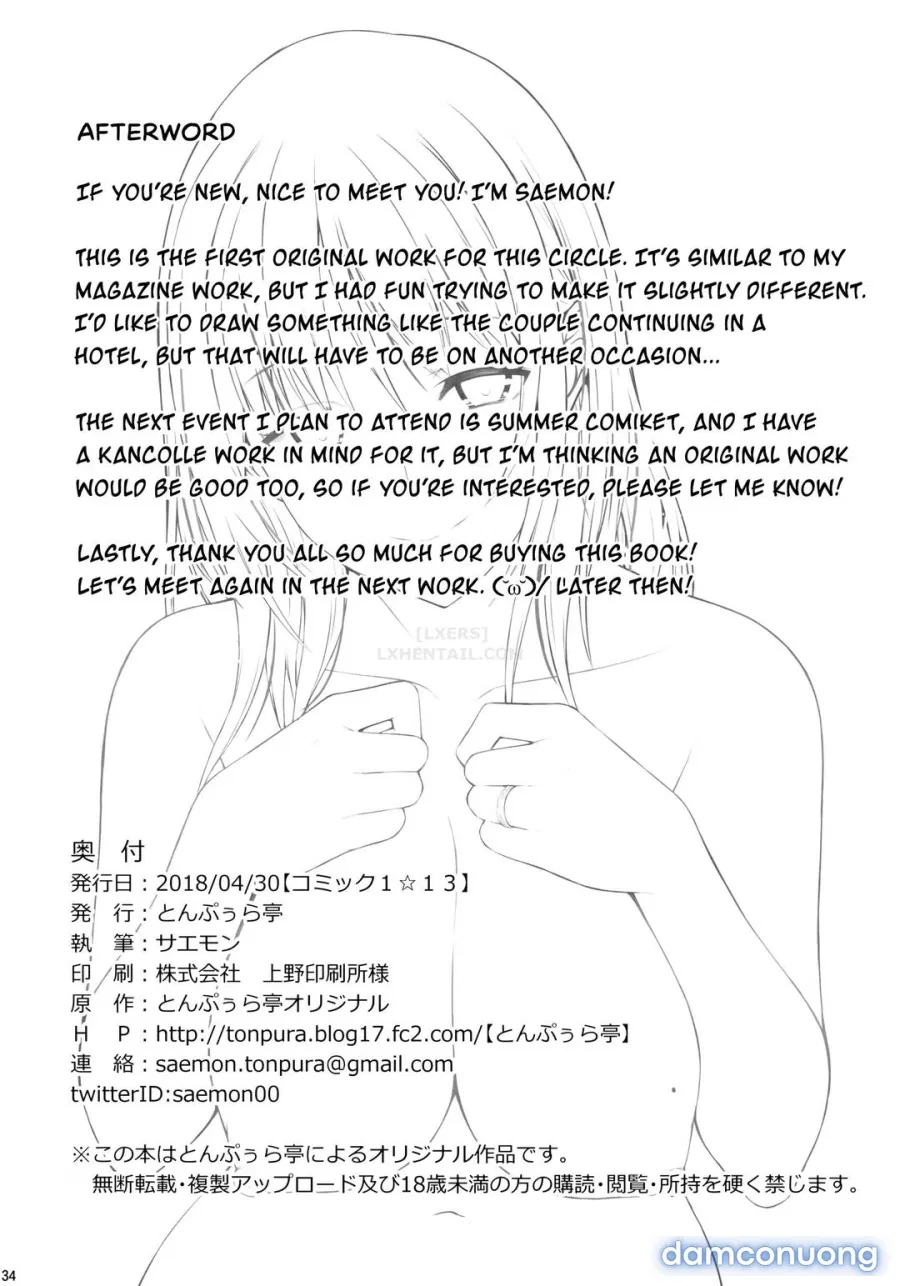 AFTERWORD
IF YOU'RE NEW, NICE TO MEET YOU! I'M SAEMON!
THIS IS THE FIRST ORIGINAL WORK FOR THIS CIRCLE. IT'S SIMILAR TO MY
MAGAZINE WORK, BUT I HAD FUN TRYING TO MAKE IT SLIGHTLY DIFFERENT.
I'D LIKE TO DRAW SOMETHING LIKE THE COUPLE CONTINUING IN A
HOTEL, BUT THAT WILL HAVE TO BE ON ANOTHER OCCASION...
THE NEXT EVENT I PLAN TO ATTEND IS SUMMER COMIKET, AND I HAVE
A KANCOLLE WORK IN MIND FOR IT, BUT I'M THINKING AN ORIGINAL WORK
WOULD BE GOOD TOO, SO IF YOU'RE INTERESTED, PLEASE LET ME KNOW!
LASTLY, THANK YOU ALL SO MUCH FOR BUYING THIS BOOK!
LET'S MEET AGAIN IN THE NEXT WORK. (˘ω˘)/ LATER THEN!
[LXERS]
LXHENTAIL.COM
奥　付
発行日：2018/04/30【コミック１☆１３】
発　行：とんぷぅら亭
執　筆：サエモン
印　刷：株式会社　上野印刷所様
原　作：とんぷぅら亭オリジナル
Ｈ　Ｐ：http://tonpura.blog17.fc2.com/【とんぷぅら亭】
連　絡：saemon.tonpura@gmail.com
twitterID:saemon00
※この本はとんぷぅら亭によるオリジナル作品です。
無断転載・複製アップロード及び18歳未満の方の購読・閲覧・所持を硬く禁じます。
34
damconuong